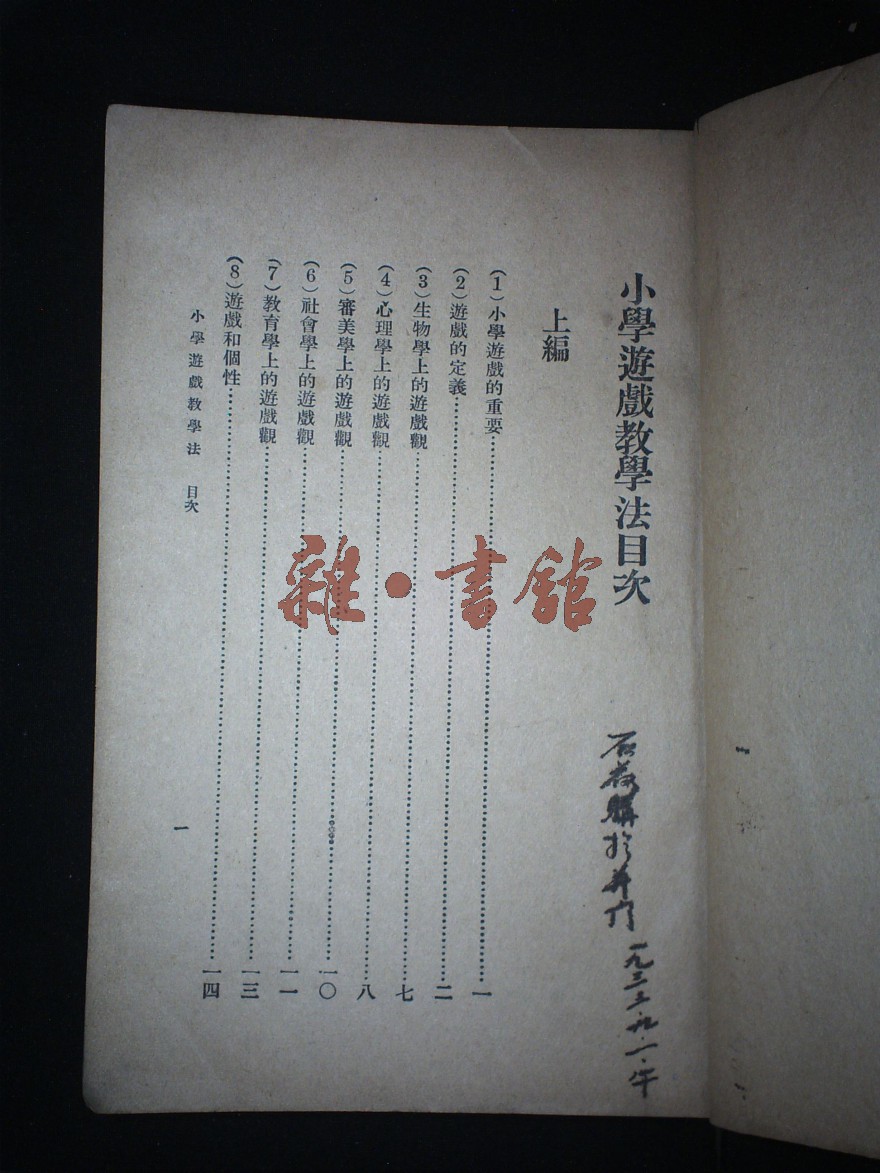 小學遊戲教學法目次
上編
(1)小學遊戲的重要……一
(2)遊戲的定義……二
(3)生物學上的遊戲觀……七
(4)心理學上的遊戲觀……八
(5)審美學上的遊戲觀……一〇
(6)社會學上的遊戲觀……一一
(7)教育學上的遊戲觀……一三
(8)遊戲和個性……一四
小學遊戲教學法 目次
一
購於并門 一九三三·九·一·午
雜·書館